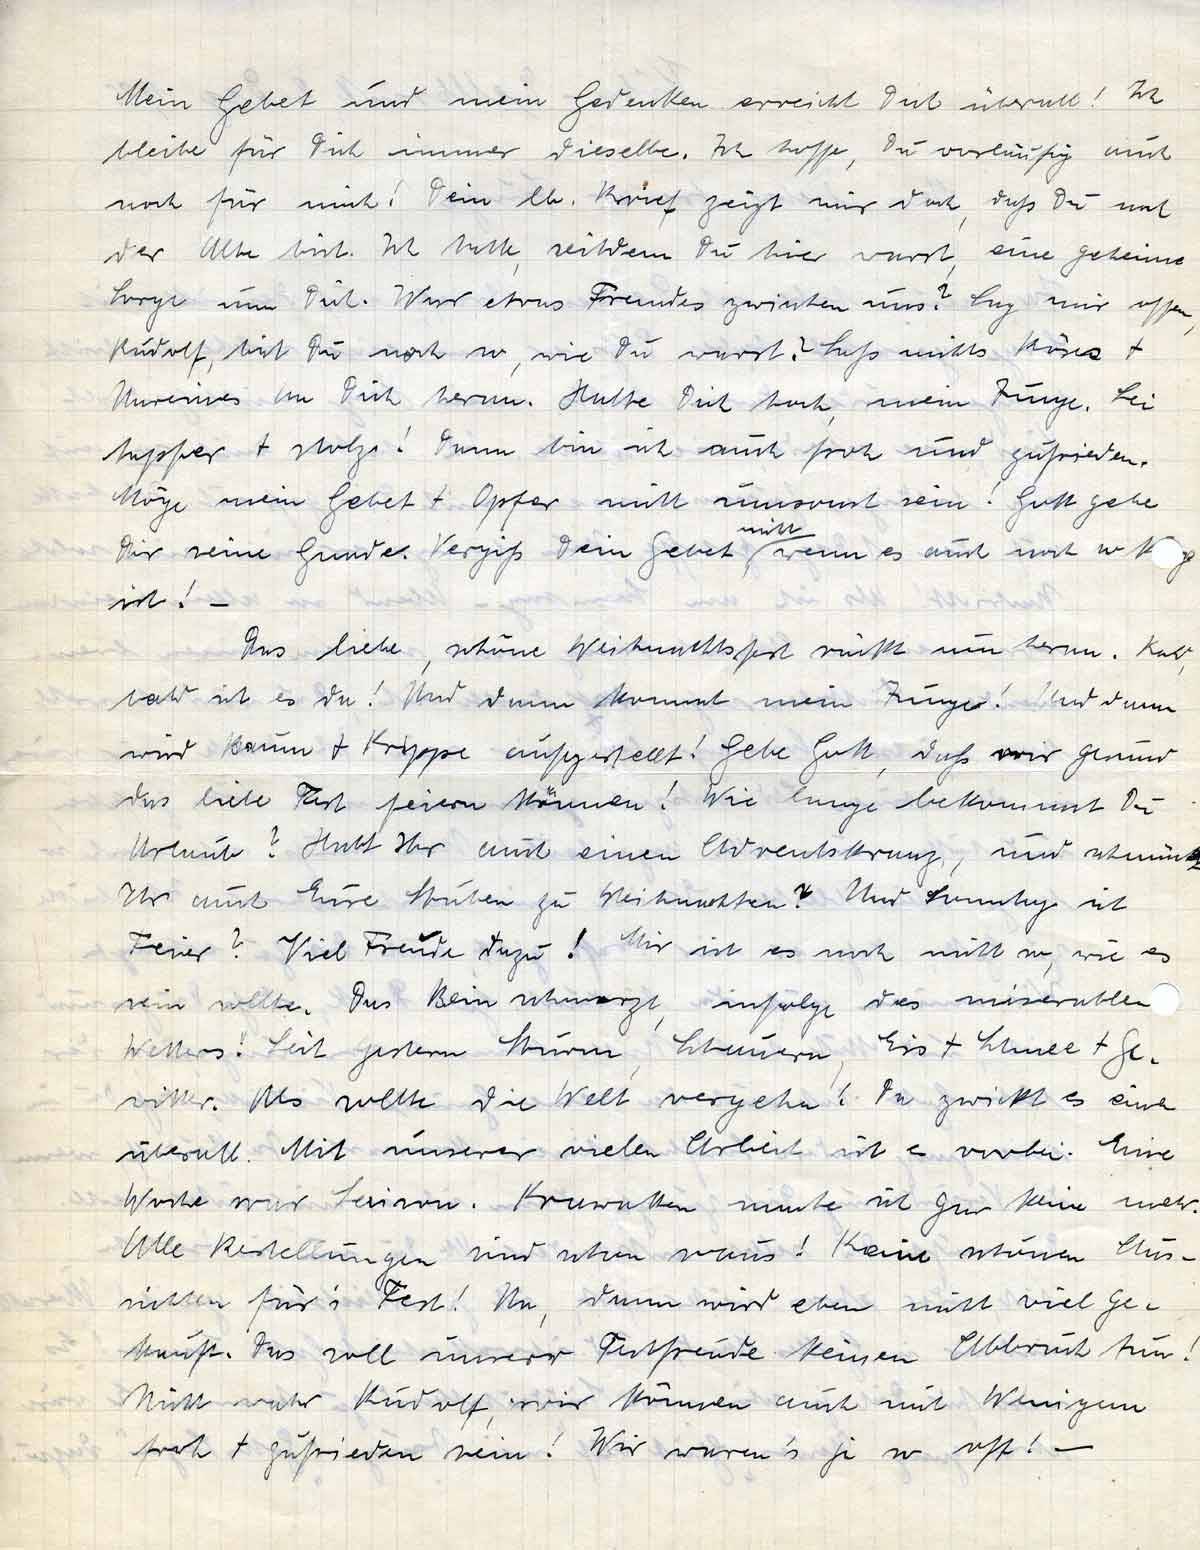 Mein Gebet und mein Gedenken erreicht Dich überall! Ich
bleibe für Dich immer dieselbe. Ich hoffe, Du vorläufig auch
noch für mich! Dein lb. Brief zeigt mir doch, daß Du noch
der Alte bist. Ich hatte, seitdem Du hier warst, eine geheime
Sorge um Dich. War etwas Fremdes zwischen uns? Sag mir offen,
Rudolf, bist Du noch so, wie Du warst? Laß nichts Böses +
Unreines an Dich heran. Halte Dich hoch, mein Junge. Sei
tapfer + stolz! Dann bin ich auch froh und zufrieden.
Möge mein Gebet + Opfer nicht umsonst sein! Gott gebe
Dir seine Gnade. Vergiß Dein Gebet nicht, wenn es auch noch so
ist! —
Das liebe, schöne Weihnachtsfest rückt nun heran. Bald,
bald ist es da! Und dann kommt mein Junge! Und dann
wird Baum + Krippe aufgestellt! Gebe Gott, daß wir gesund
das liebe Fest feiern können! Wie lange bekommst Du
Urlaub? Habt Ihr auch einen Adventskranz, und schmückt
Ihr auch Eure Stuben zu Weihnachten? Und Sonntag ist
Feier? Viel Freude dazu! Mir ist es noch nicht so, wie es
sein sollte. Das Bein schmerzt, infolge des miserablen
Wetters! Seit gestern Sturm, Schauern, Eis + Schnee + Ge-
witter. Als sollte die Welt vergehn! Da zwickt es einen
überall. Mit unserer vielen Arbeit ist es vorbei. Eine
Woche war Saison. Krawatten mache ich gar keine mehr.
Alle Bestellungen sind schon raus! Keine schönen Aus-
sichten für's Fest! Na, dann wird eben nicht viel ge-
kauft. Das soll unserer Festfreude keinen Abbruch tun!
Nicht wahr Rudolf, wir können auch mit Wenigem
froh + zufrieden sein! Wir waren's ja so oft! —